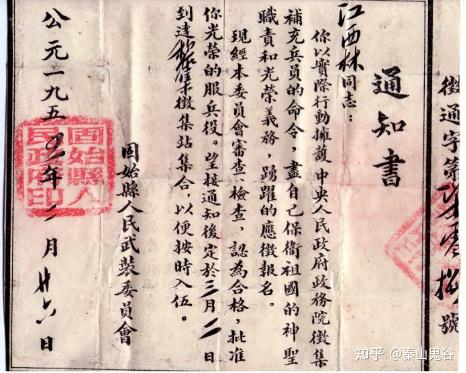 徵通字第柒零號
通知書
江西林同志：
你以實際行動擁護中央人民政府政務院徵集
補充兵員的命令，盡自己保衛祖國的神聖
職責和光榮義務，踴躍的應徵報名。
現經本委員會審查、檢查，認為合格 批准
你光榮的服兵役。望接通知後定於三月二日
到達黎集徵集站集合，以便按時入伍。
固始縣人民武裝委員會
公元一九五四年二月廿六日
固始縣人民政府印
知乎 @秦山鬼谷